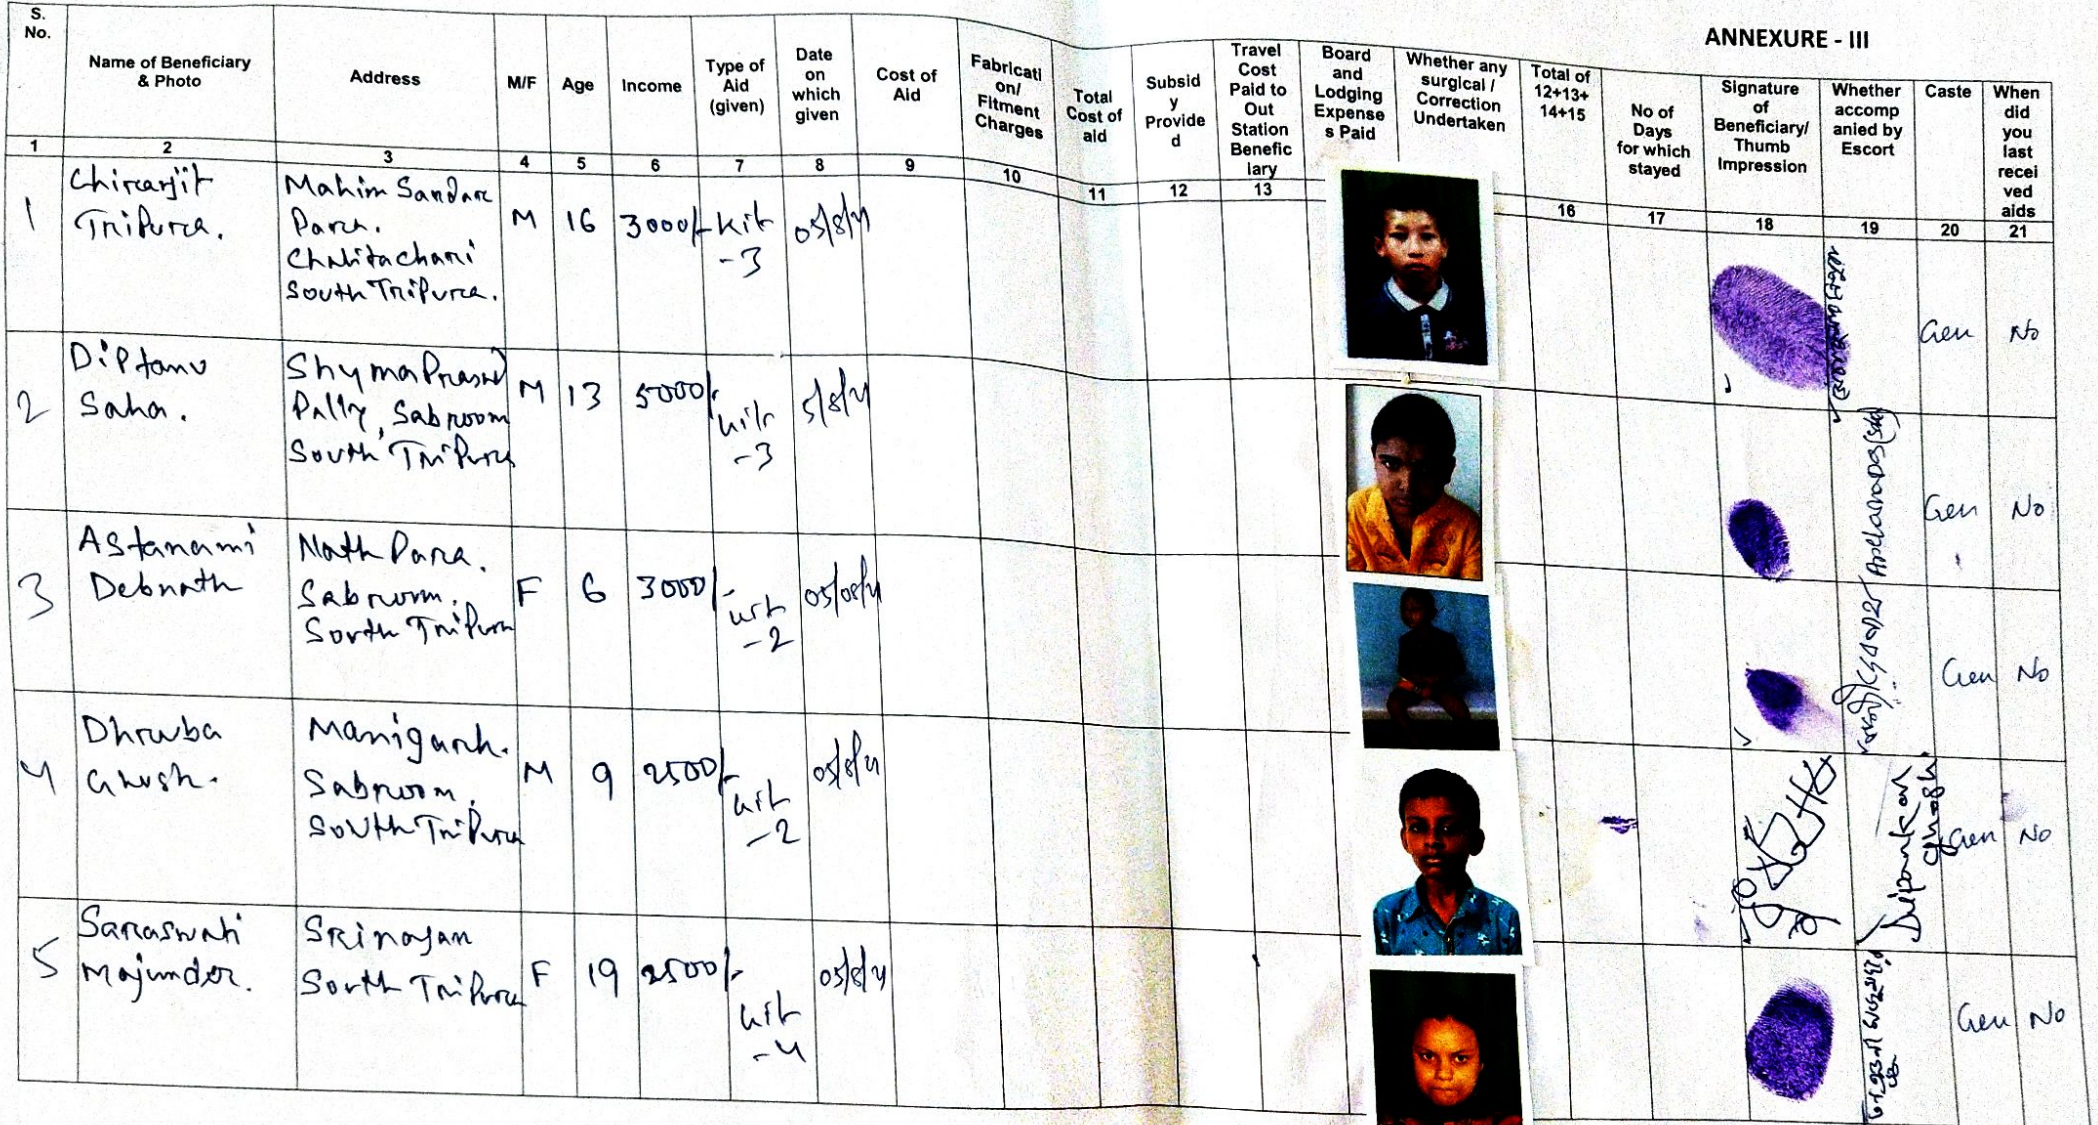 ANNEXURE - III
S. No.
Name of Beneficiary & Photo
Address
M/F
Age
Income
Type of Aid (given)
Date on which given
Cost of Aid
Fabricati on/ Fitment Charges
Total Cost of aid
Subsid y Provide d
Travel Cost Paid to Out Station Benefic iary
Board and Lodging Expense s Paid
Whether any surgical / Correction Undertaken
Total of 12+13+ 14+15
No of Days for which stayed
Signature of Beneficiary/ Thumb Impression
Whether accomp anied by Escort
Caste
When did you last recei ved aids
1 2 3 4 5 6 7 8 9 10 11 12 13 16 17 18 19 20 21
1 Chiranjit Tripura. Mahim Sardar Para. South Tripura. M 16 3000/- Kit -3 05/8/21 Gen No
2 Diptanu Saha. Shyma Prasad Pally, Sabroom South Tripura M 13 5000/- kit -3 5/8/21 Gen No
3 Astanami Debnath Nath Para. Sabroom. South Tripura F 6 3000/- kit -2 05/08/21 Gen No
4 Dhruba Ghosh. Sabroom. South Tripura M 9 2500/- kit -2 05/8/21 Dipankar Ghosh Gen No
5 Saraswati Majumder. Srinagar South Tripura F 19 2500/- kit -4 05/8/21 Gen No